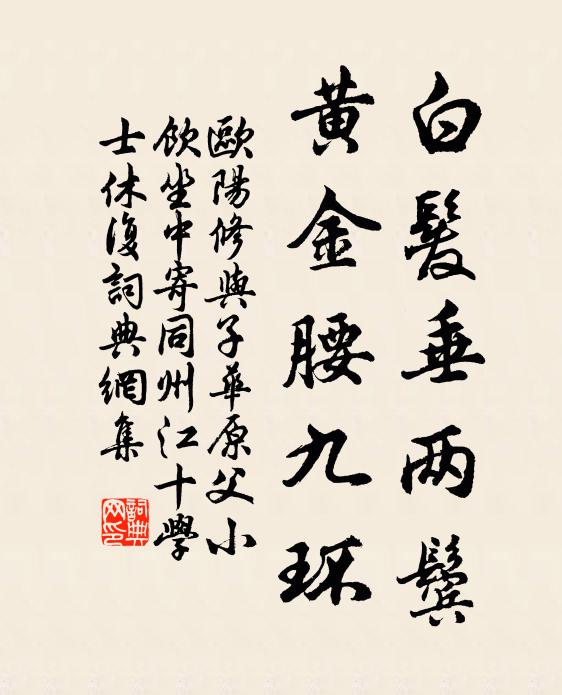 白髮垂两鬢
黃金腰九环
歐陽修與子華原父小
飲坐中寄同州江十學
士休復詞典網集
詞典网印